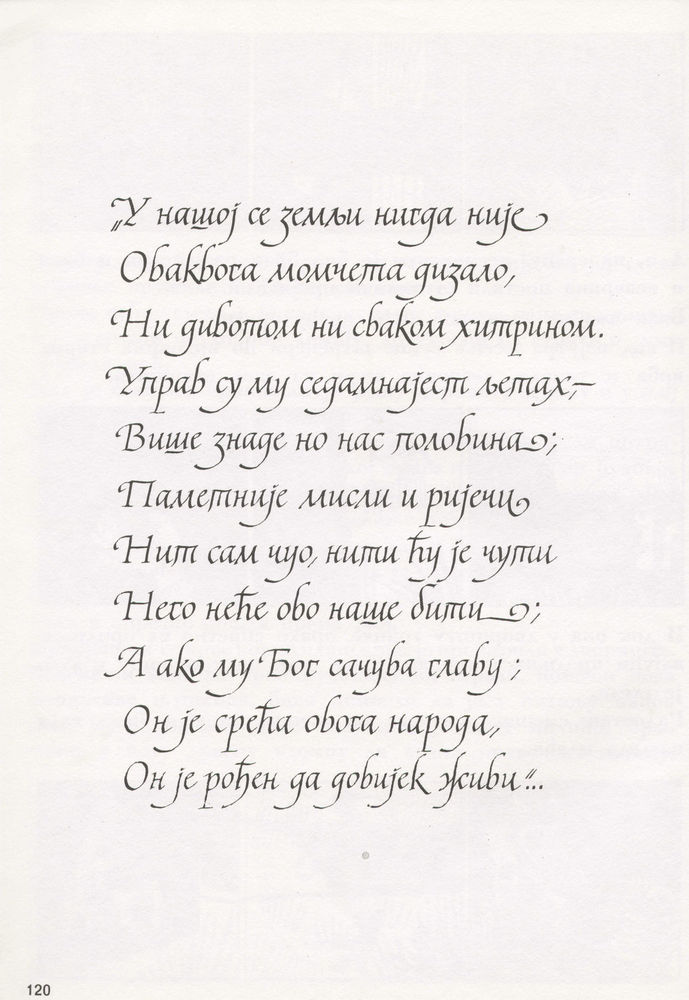 „У нашој се земљи нигда није
Оваквога момчета дизало,
Ни дивотом ни сваком хитрином.
Управ су му седамнајест љетах,—
Више знаде но нас половина;
Паметније мисли и ријечи
Нит сам чуо, нити ћу је чути
Него неће ово наше бити;
А ако му Бог сачува главу;
Он је срећа овога народа,
Он је рођен да довијек живи“...
120